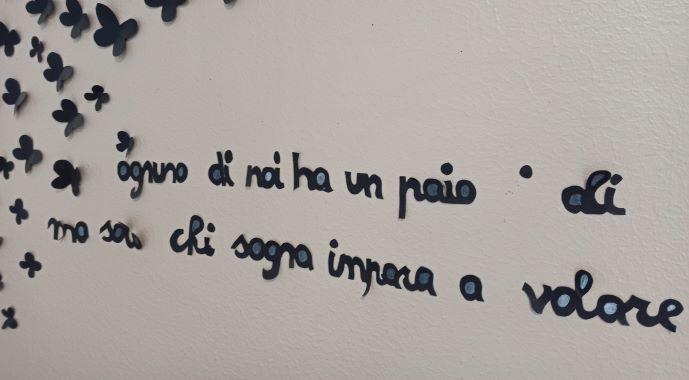 ognuno di noi ha un paio ali
ma chi sogna impara a volare